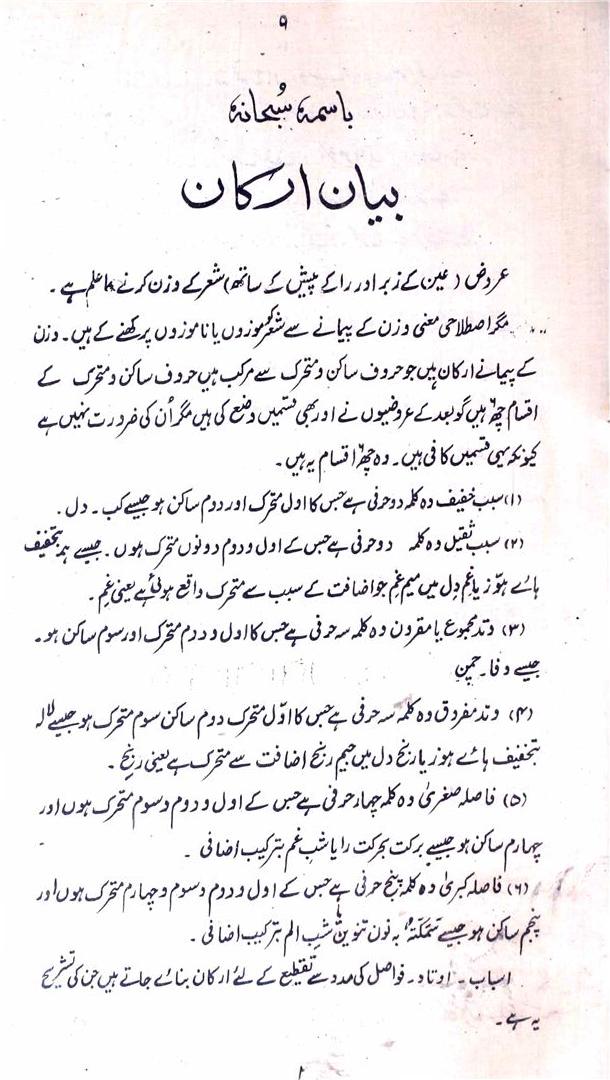 ۹
باسمہ سُبحانہ
بیان ارکان
عروض (عین کے زبر اور را کے پیش کے ساتھ) شعر کے وزن کرنے کا علم ہے ۔
مگر اصطلاحی معنی وزن کے پیمانے سے شعر کو موزوں یا ناموزوں پرکھنے کے ہیں ۔ وزن
کے پیمانے ارکان ہیں جو حروف ساکن و متحرک سے مرکب ہیں حروف ساکن و متحرک کے
اقسام چھ ہیں گو بعد کے عروضیوں نے اور بھی قسمیں وضع کی ہیں مگر اُن کی ضرورت نہیں ہے
کیونکہ یہی قسمیں کافی ہیں ۔ وہ چھ اقسام یہ ہیں ۔
(۱) سبب خفیف وہ کلمہ دو حرفی ہے جس کا اول متحرک اور دوم ساکن ہو جیسے کب ۔ دل ۔
(۲) سبب ثقیل وہ کلمہ دو حرفی ہے جس کے اول و دوم دونوں متحرک ہوں ۔ جیسے ہمہ بتخفیف
ہائے ہوّز یا غمِ دِل میں میم غم جو اضافت کے سبب سے متحرک واقع ہوئی ہے یعنی غمِ ۔
(۳) وتد مجموع یا مقرون وہ کلمہ سہ حرفی ہے جس کا اول و دوم متحرک اور سوم ساکن ہو ۔
جیسے وفا ۔ چمن
(۴) وتد مفروق وہ کلمہ سہ حرفی ہے جس کا اوّل متحرک دوم ساکن سوم متحرک ہو جیسے لالہ
بتخفیف ہائے ہوز یا رنج دل میں جیم رنج اضافت سے متحرک ہے یعنی رنجِ ۔
(۵) فاصلہ صغریٰ وہ کلمہ چہار حرفی ہے جس کے اول و دوم و سوم متحرک ہوں اور
چہارم ساکن ہو جیسے برکت بحرکت را یا شبِ غم بترکیب اضافی ۔
(۶) فاصلہ کبریٰ وہ کلمہ پنج حرفی ہے جس کے اول و دوم و سوم و چہارم متحرک ہوں اور
پنجم ساکن ہو جیسے سَمَکَتہٌ بہ نون تنوین یا شبِ الم بترکیب اضافی ۔
اسباب ۔ اوتاد ۔ فواصل کی مدد سے تقطیع کے لئے ارکان بنائے جاتے ہیں جن کی تشریح
یہ ہے ۔